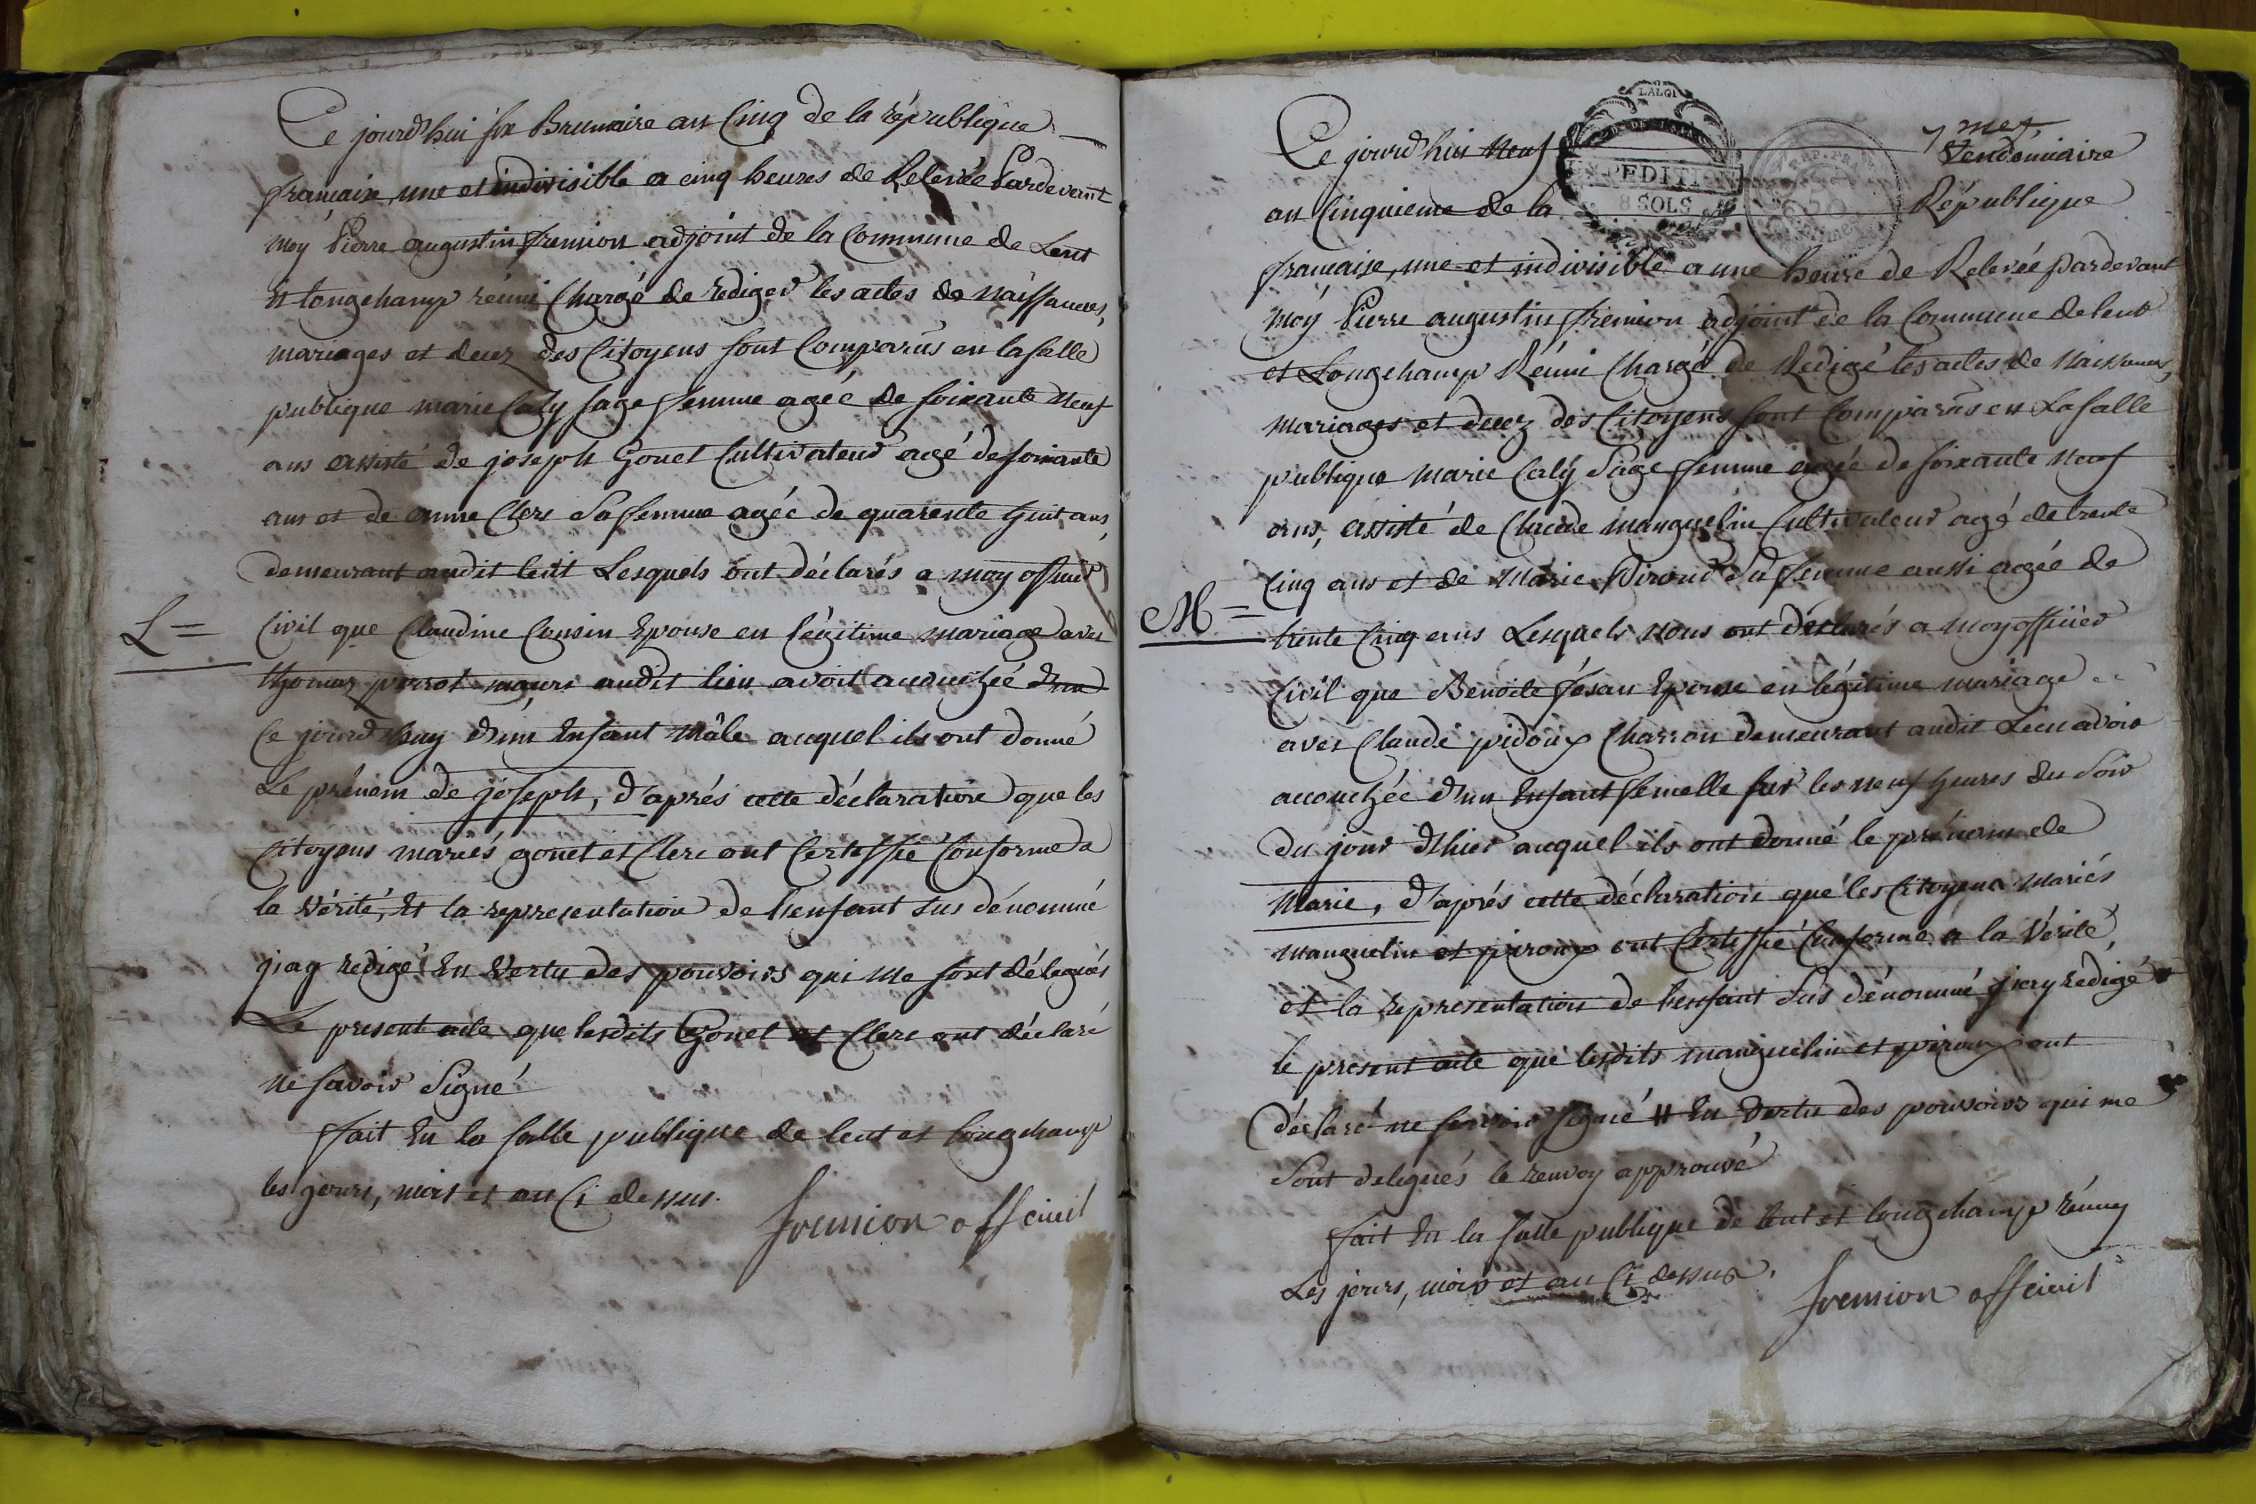 Ce jourd'hui six Brumaire an Cinq de la république
française, une et indivisible a cinq heures de Relevée Pardevant
moy Pierre augustin fremion adjoint de la Commune de Lent
Et longchamp réuni Chargé de rediger les actes de naissances,
mariages et decez des Citoyens sont Comparûs en la salle
publique marie Caly sage femme agée de soixante neuf
ans assisté de joseph Gonet Cultivateur agé de soixante
ans et de anne Clerc Sa femme agée de quarente huit ans,
demeurant audit lent Lesquels ont déclarés a moy officier
L =
Civil que Claudine Cousin Epouse en légitime mariage avec
thomas perrot audit lieu avoit accouchée d'un
Ce jourd'huy d'un Enfant Mâle auquel ils ont donné
Le prénom de joseph, d'aprés cette déclaration que les
Citoyens mariés gonet et Clerc ont Certiffié Conforme a
la vérité, Et la representation de l'enfant sus dénommé
j'iay redigé En Vertu des pouvoirs qui me sont délegués
Le present acte que lesdits Gonet et Clerc ont déclaré
ne savoir Signé
fait En la salle publique de lent et longchamp
les jours, mois et an Ci dessus.
fremion off civil
LA LOI
EXPEDITION
8 SOLS
Ce jourd'hui neuf
Vendémiaire
an Cinquieme de la République
française, une et indivisible a une heure de Relevée pardevant
Moy Pierre augustin fremion adjoint de la Commune de lent
et Longchamp Réuni Chargé de Redigé les actes de Naissances,
Mariages et decez des Citoyens sont Comparûs en La salle
publique Marie Caly Sage femme agée de soixante neuf
ans, assisté de Claude manguelin Cultivateur agé de trente
Cinq ans et de Marie Piroud Sa femme aussi agée de
M =
trente Cinq ans Lesquels nous ont déclarés a moy officier
Civil que Benoite Epouse en légitime mariage
avec Claude pidoux Charron demeurant audit Lieu avoir
accouchée d'un Enfant femelle sur les neuf heures du Soir
du jour d'hier auquel ils ont donné le prénom de
Marie, d'aprés cette déclaration que les Citoyens Mariés
manguelin et piroux ont Certiffié Conforme a la Vérité,
et la representation de l'enfant Sus dénommé j'iay rédigé #
le present acte que lesdits manguelin et piroux ont
déclaré ne scavoir signé # En Vertu des pouvoirs qui me
Sont delegués le renvoy approuvé
fait En la Salle publique de lent et longchamp réuny
Les jours, mois et an Ci dessus.
fremion off civil